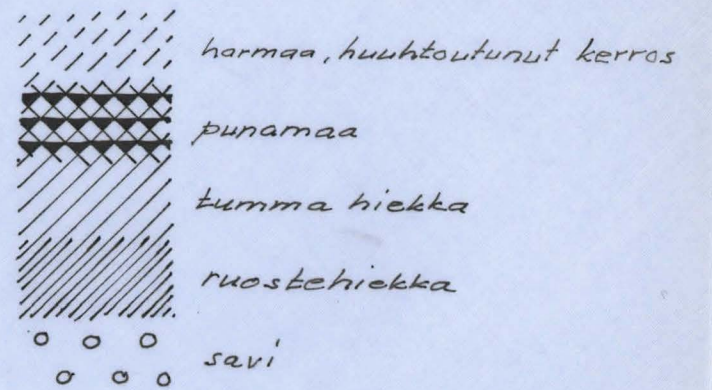 harmaa, huuhtoutunut kerros
punamaa
tumma hiekka
ruostehiekka
savi